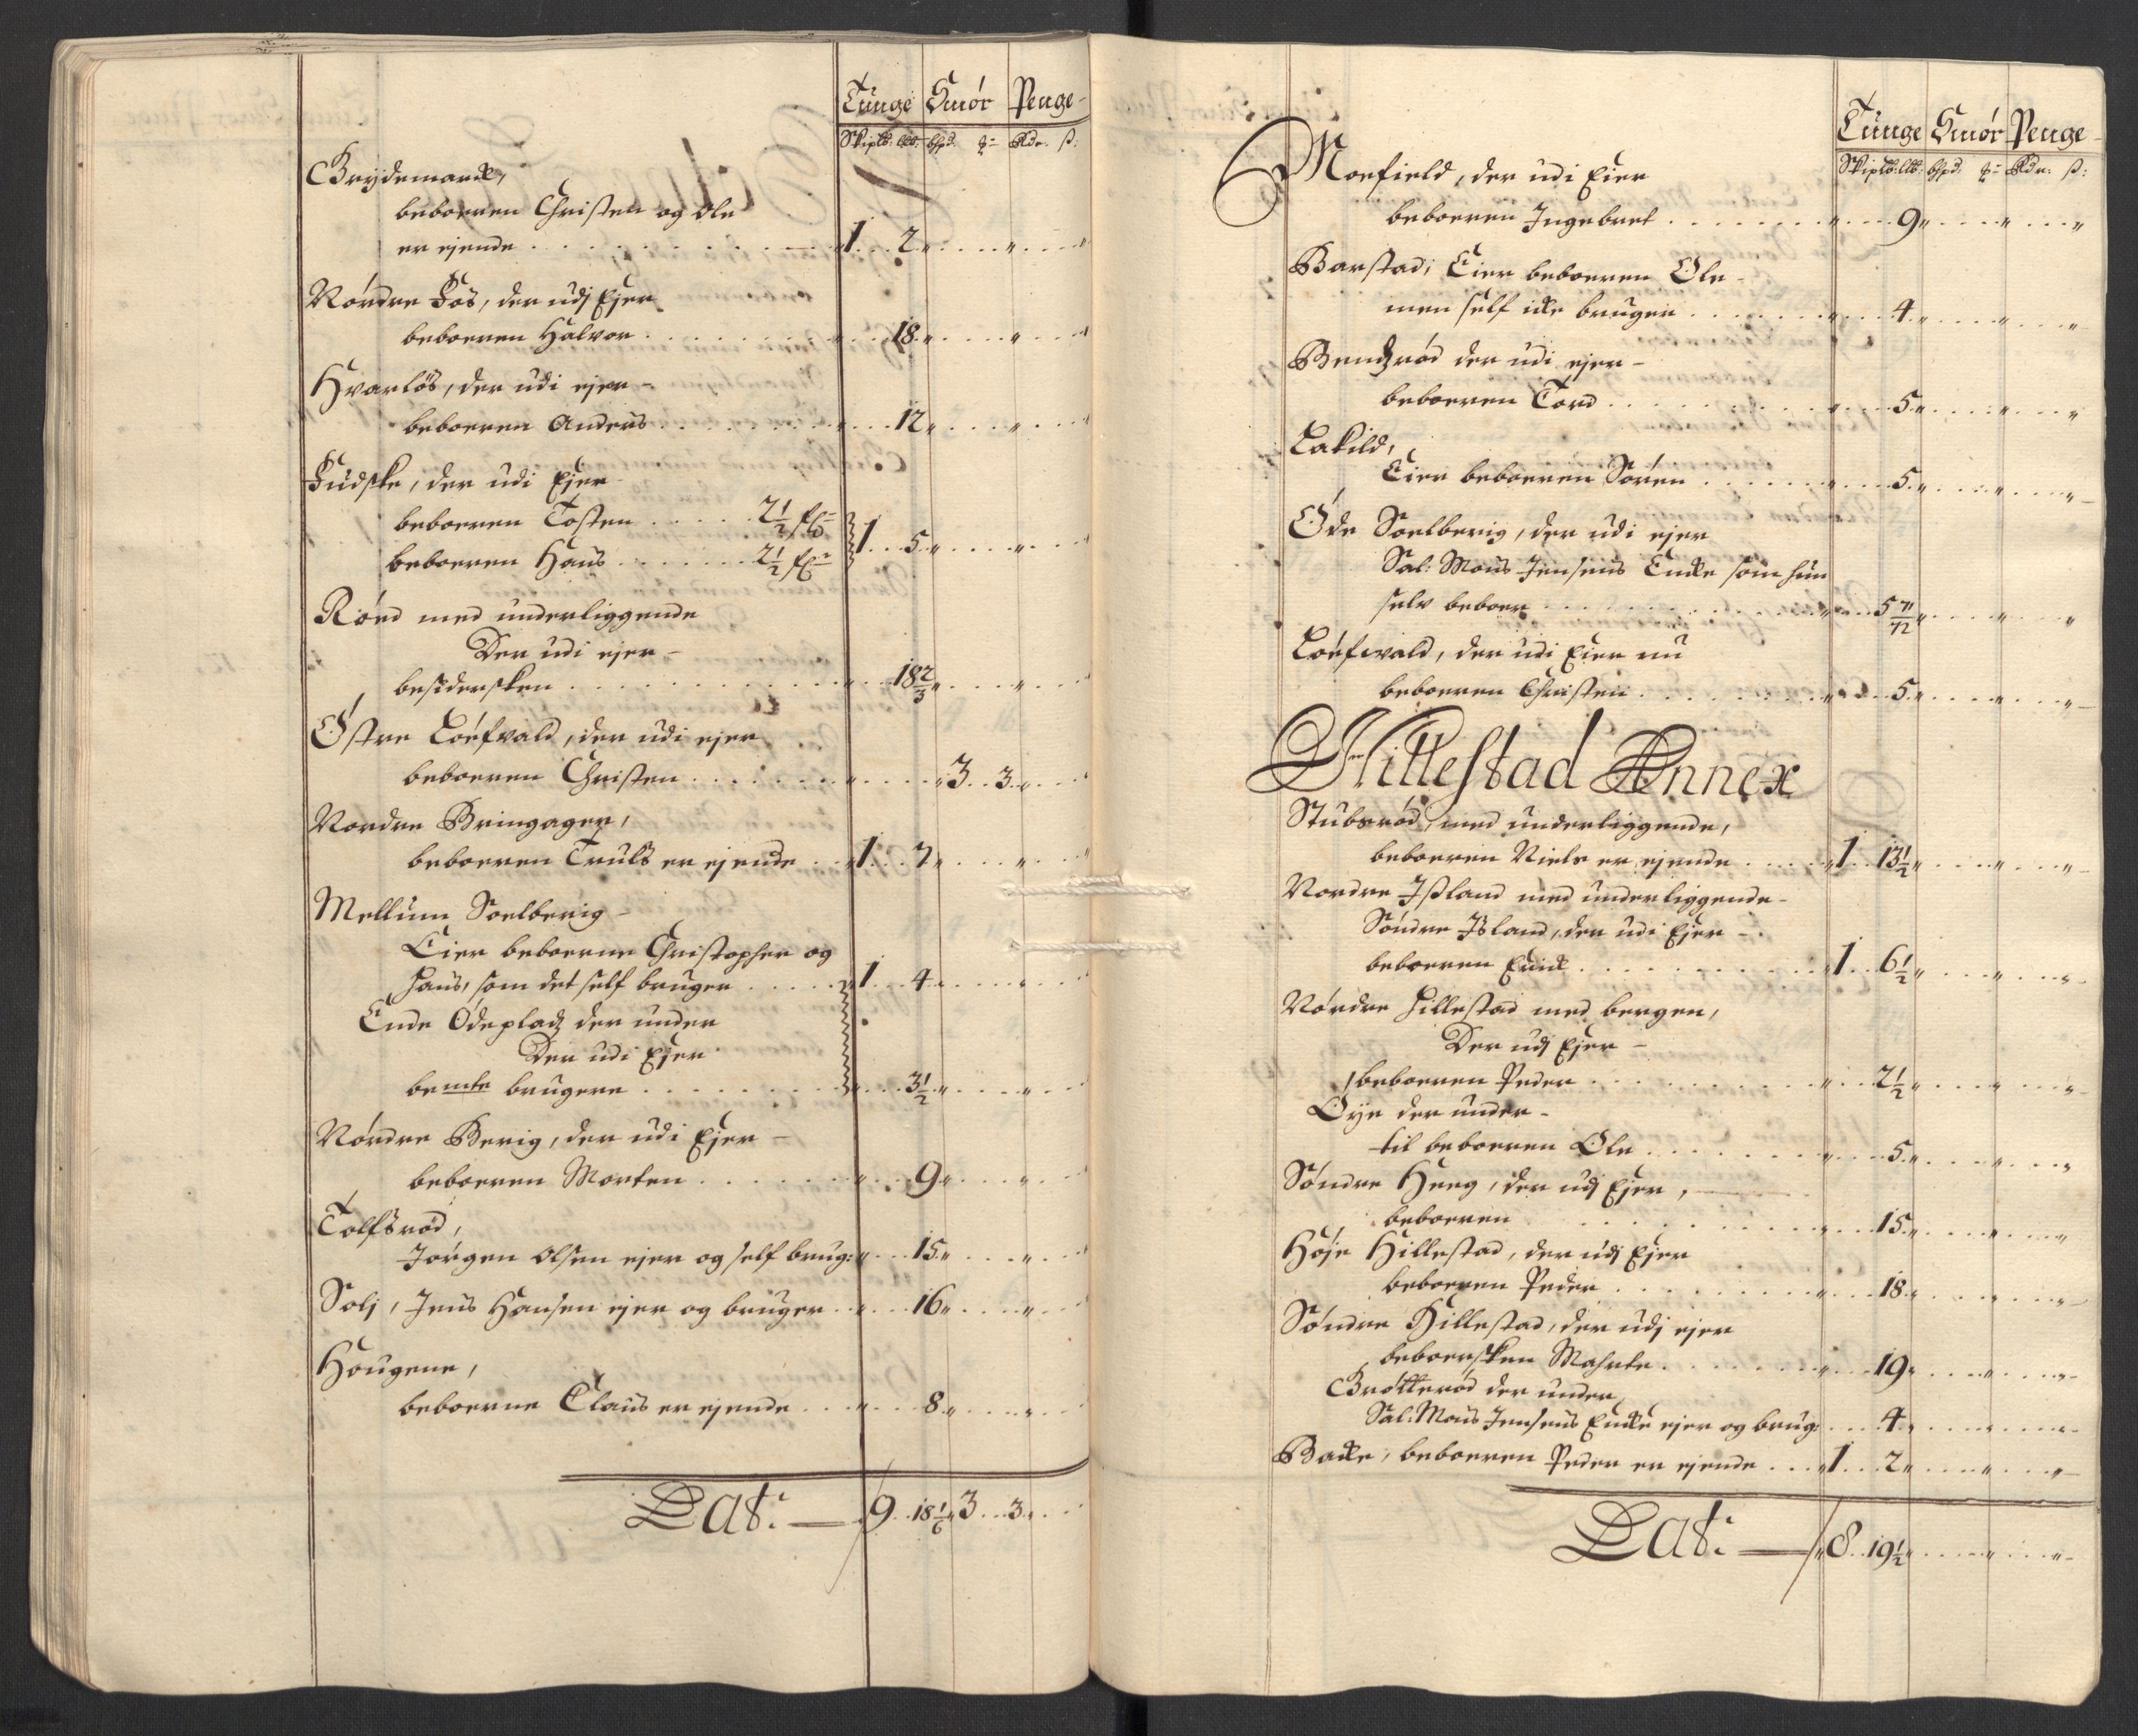 Tunge Smór Penge
Skiplb: lb: bspd. Rdr. ß:
Brydemarck,
beboeren Christen og Ole
er ejende 1 2
Nórdre Fos, der udj Ejer
beboeren Halvor 18
Hvarlós, der udi ejer
beboeren Anders 12
Fudske, der udi Ejer
beboeren Tosten 2 1/2
beboeren Hans 2 1/2
1 5
Rórd med underliggende
Der udi ejer
besidersken 18 2/3
Óstre Lóefvald, der udi ejer
beboeren Christen 3 3
Nordre Bringager,
beboeren Truls er ejende 1 7
Mellum Soelberig
Eier beboerne Christopher og
Hans, som det self bruger 1 4
Ende Ódeplads der under
Der udi Ejer
bemte brugere 3 1/2
Nórdre Berig, der udi Ejer
beboeren Morten 9
Tolfsród,
Jórgen Olsen ejer og self brug: 15
Solj, Jens Hansen ejer og bruger 16
Hougene,
beboerne Claus er ejende 8
Lat: 9 18 1/6 3 3
Tunge Smór Penge
Skiplb: lb: bspd: Rdr: ß:
Moefield, der udi Eier
beboeren Ingebret 9
Barstad, Eier beboeren Ole
men self icke bruger 4
Bendsród der udi ejer
beboeren Tord 5
Lakild,
Eier beboeren Sóren 5
Óde Soelberig, der udi ejer
Sal: Mons Jensens Encke som hun
selv beboer 5 7/12
Lóefwald, der udi Eier nu
beboeren Christen 5
Hillestad Annex
Stubsród, med underliggende,
beboeren Niels er ejende 1 13 1/2
Nordre Ißland med underliggende
Sóndre Island, der udi Ejer
beboeren Erick 1 6 1/2
Nórdre Hillestad med bergen,
Der udj Ejer
beboeren Peder 2 1/2
Óye der under
til beboeren Ole 5
Sóndre Heeg, der udj Ejer,
beboeren 15
Hóje Hillestad, der udj Ejer
beboeren Peder 18
Sóndre Hillestad, der udj ejer
beboersken Mahrte 19
Brótteród der under
Sal: Mons Jensens Encke ejer og brug: 4
Backe, beboeren Peder er ejende 1 2
Lat: 8 19 1/2